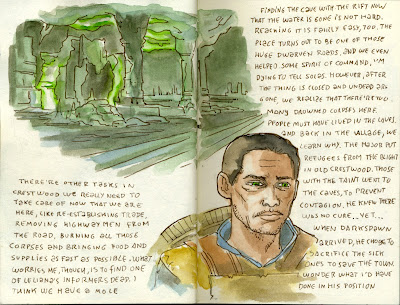 THERE'RE OTHER TASKS IN
CRESTWOOD WE REALLY NEED TO
TAKE CARE OF NOW THAT WE ARE
HERE, LIKE RE-ESTABLISHING TRADE,
REMOVING HIGHWAYMEN FROM
THE ROAD, BURNING ALL THOSE
CORPSES AND BRINGING FOOD AND
SUPPLIES AS FAST AS POSSIBLE. WHAT
WORRIES ME, THOUGH, IS TO FIND ONE
OF LELIANA'S INFORMERS DEAD. I
THINK WE HAVE A MOLE
FINDING THE CAVE WITH THE RIFT NOW
THAT THE WATER IS GONE IS NOT HARD.
REACHING IT IS FAIRLY EASY, TOO. THE
PLACE TURNS OUT TO BE ONE OF THOSE
HUGE DWARVEN ROADS, AND WE EVEN
HELPED SOME SPIRIT OF COMMAND, I'M
DYING TO TELL SOLAS. HOWEVER, AFTER
THE THING IS CLOSED AND UNDEAD ARE
GONE, WE REALIZE THAT THERE'RE TOO
MANY DROWNED CORPSES HERE.
PEOPLE MUST HAVE LIVED IN THE CAVES,
AND BACK IN THE VILLAGE, WE
LEARN WHY. THE MAJOR PUT
REFUGEES FROM THE BLIGHT
IN OLD CRESTWOOD. THOSE
WITH THE TAINT WENT TO
THE CAVES, TO PREVENT
CONTAGION, HE KNEW THERE
WAS NO CURE... YET...
WHEN DARKSPAWN
ARRIVED, HE CHOSE TO
SACRIFICE THE SICK
ONES TO SAVE THE TOWN.
WONDER WHAT I'D HAVE
DONE IN HIS POSITION